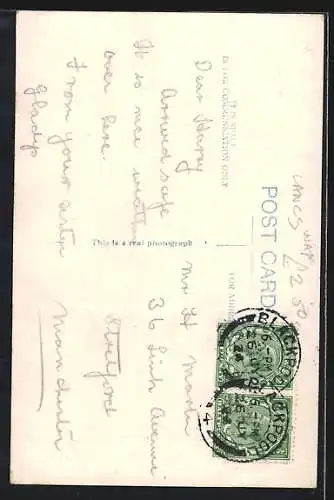 POST CARD
THIS SPACE
IS FOR COMMUNICATION ONLY
FOR ADDRESS
This is a real photograph
LANCS
£12.50
Dear Harry
Arrived safe
It is nice weather
over here.
From your sister
Gladys
Mr H
36 Avenue
Stretford
Manchester
BLACKPOOL
BLACKPOOL